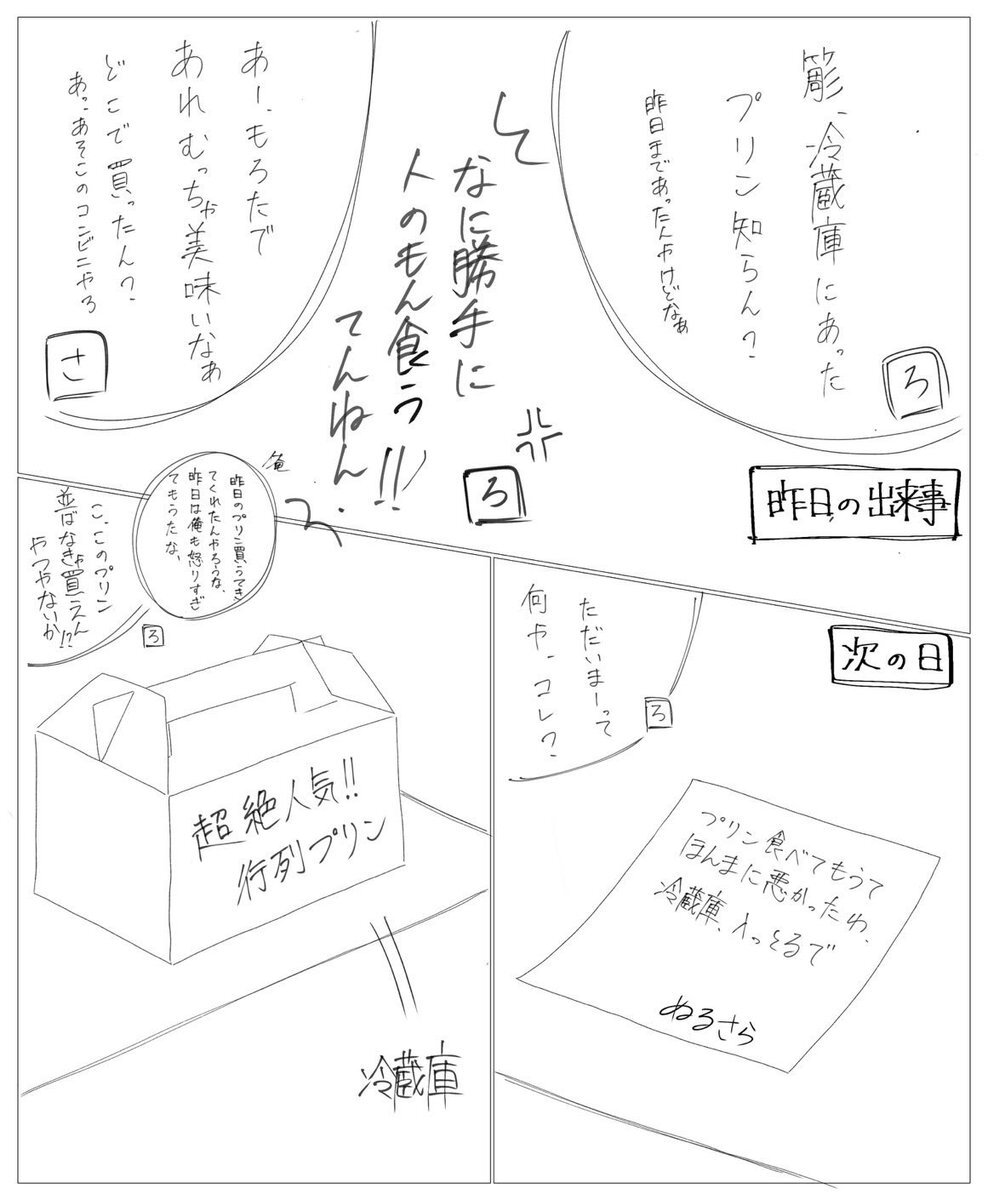 簓、冷蔵庫にあった
プリン知らん?
昨日まであったんやけどなぁ
ろ
なに勝手に
人のもん食う
てんねん!!
ろ
あー、もろたで
あれむっちゃ美味いなぁ
どこで買ったん?
あっ、あそこのコンビニやろ
さ
昨日の出来事
次の日
ただいまーって
何や、コレ?
ろ
プリン食べてもうて
ほんまに悪かったわ、
冷蔵庫、入っとるで
ぬるさら
昨日のプリン買うてき
てくれたんやろうな、
昨日は俺も怒りすぎ
てもうたな、
こ、このプリン
並ばなきゃ買えん
やつやないか!?
ろ
超絶人気!!
行列プリン
冷蔵庫